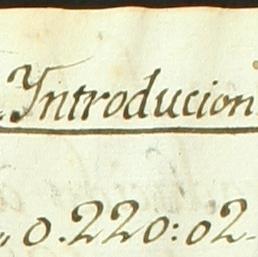 Introducion
0.220:02.